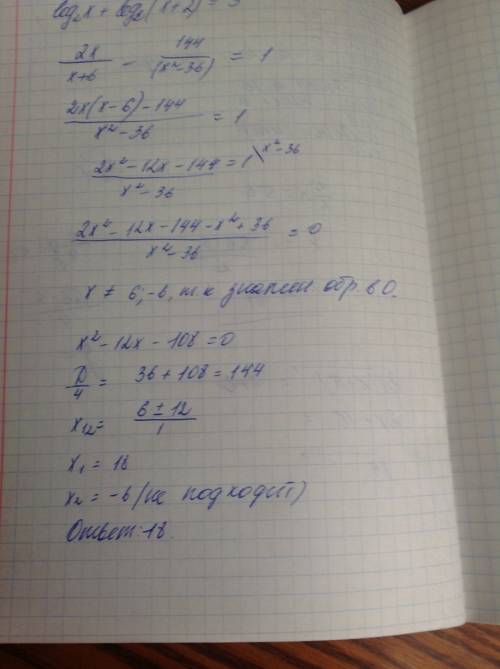 log₂x + log₂(x+2) = 3
2x/(x+6) − 144/(x²−36) = 1
(2x(x−6)−144)/(x²−36) = 1
(2x²−12x−144)/(x²−36) = 1\x²−36
(2x²−12x−144−x²+36)/(x²−36) = 0
x ≠ 6; −6, т.к знамен обр. в 0.
x²−12x−108=0
D/4 = 36+108=144
x₁₂= (6±12)/1
x₁ = 18
x₂ = −6 (не подходит)
Ответ: 18.